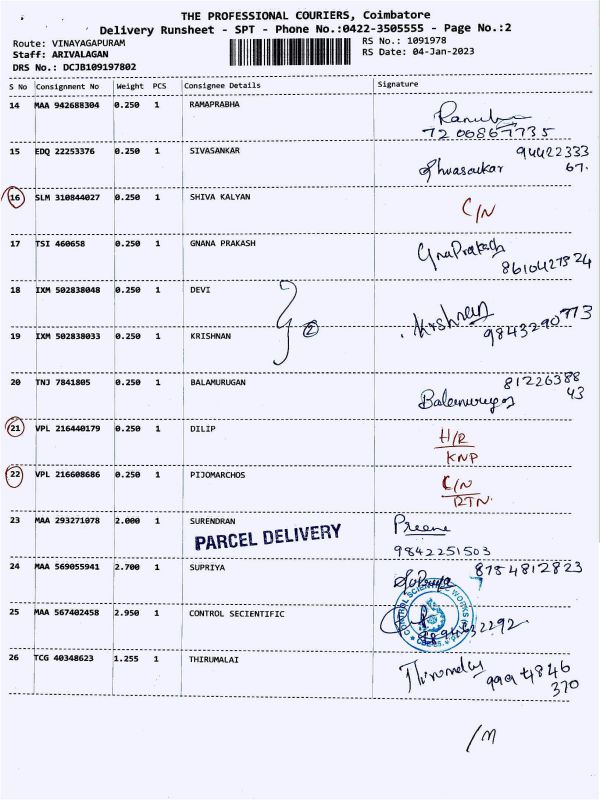 THE PROFESSIONAL COURIERS, Coimbatore
Delivery Runsheet - SPT - Phone No.:0422-3505555 - Page No.:2
Route: VINAYAGAPURAM RS No.: 1091978
Staff: ARIVALAGAN RS Date: 04-Jan-2023
DRS No.: DCJB109197802
S No Consignment No Weight PCS Consignee Details Signature
14 MAA 942688304 0.250 1 RAMAPRABHA
7200867735
15 EDQ 22253376 0.250 1 SIVASANKAR 94422333
67.
16 SLM 310844027 0.250 1 SHIVA KALYAN C/N
17 TSI 460658 0.250 1 GNANA PRAKASH GnaPrakash
8610427324
18 IXM 502838048 0.250 1 DEVI
2 Krshnan
9843290773
19 IXM 502838033 0.250 1 KRISHNAN
20 TNJ 7841805 0.250 1 BALAMURUGAN 81226388
43
Balamurugan
21 VPL 216440179 0.250 1 DILIP H/R
KNP
22 VPL 216608686 0.250 1 PIJOMARCHOS C/N
RTN.
23 MAA 293271078 2.000 1 SURENDRAN Preena
PARCEL DELIVERY
9842251503
24 MAA 569055941 2.700 1 SUPRIYA 8754812823
Supriya
25 MAA 567402458 2.950 1 CONTROL SECIENTIFIC
26 TCG 40348623 1.255 1 THIRUMALAI Thirumalai
999 4846
370
/M